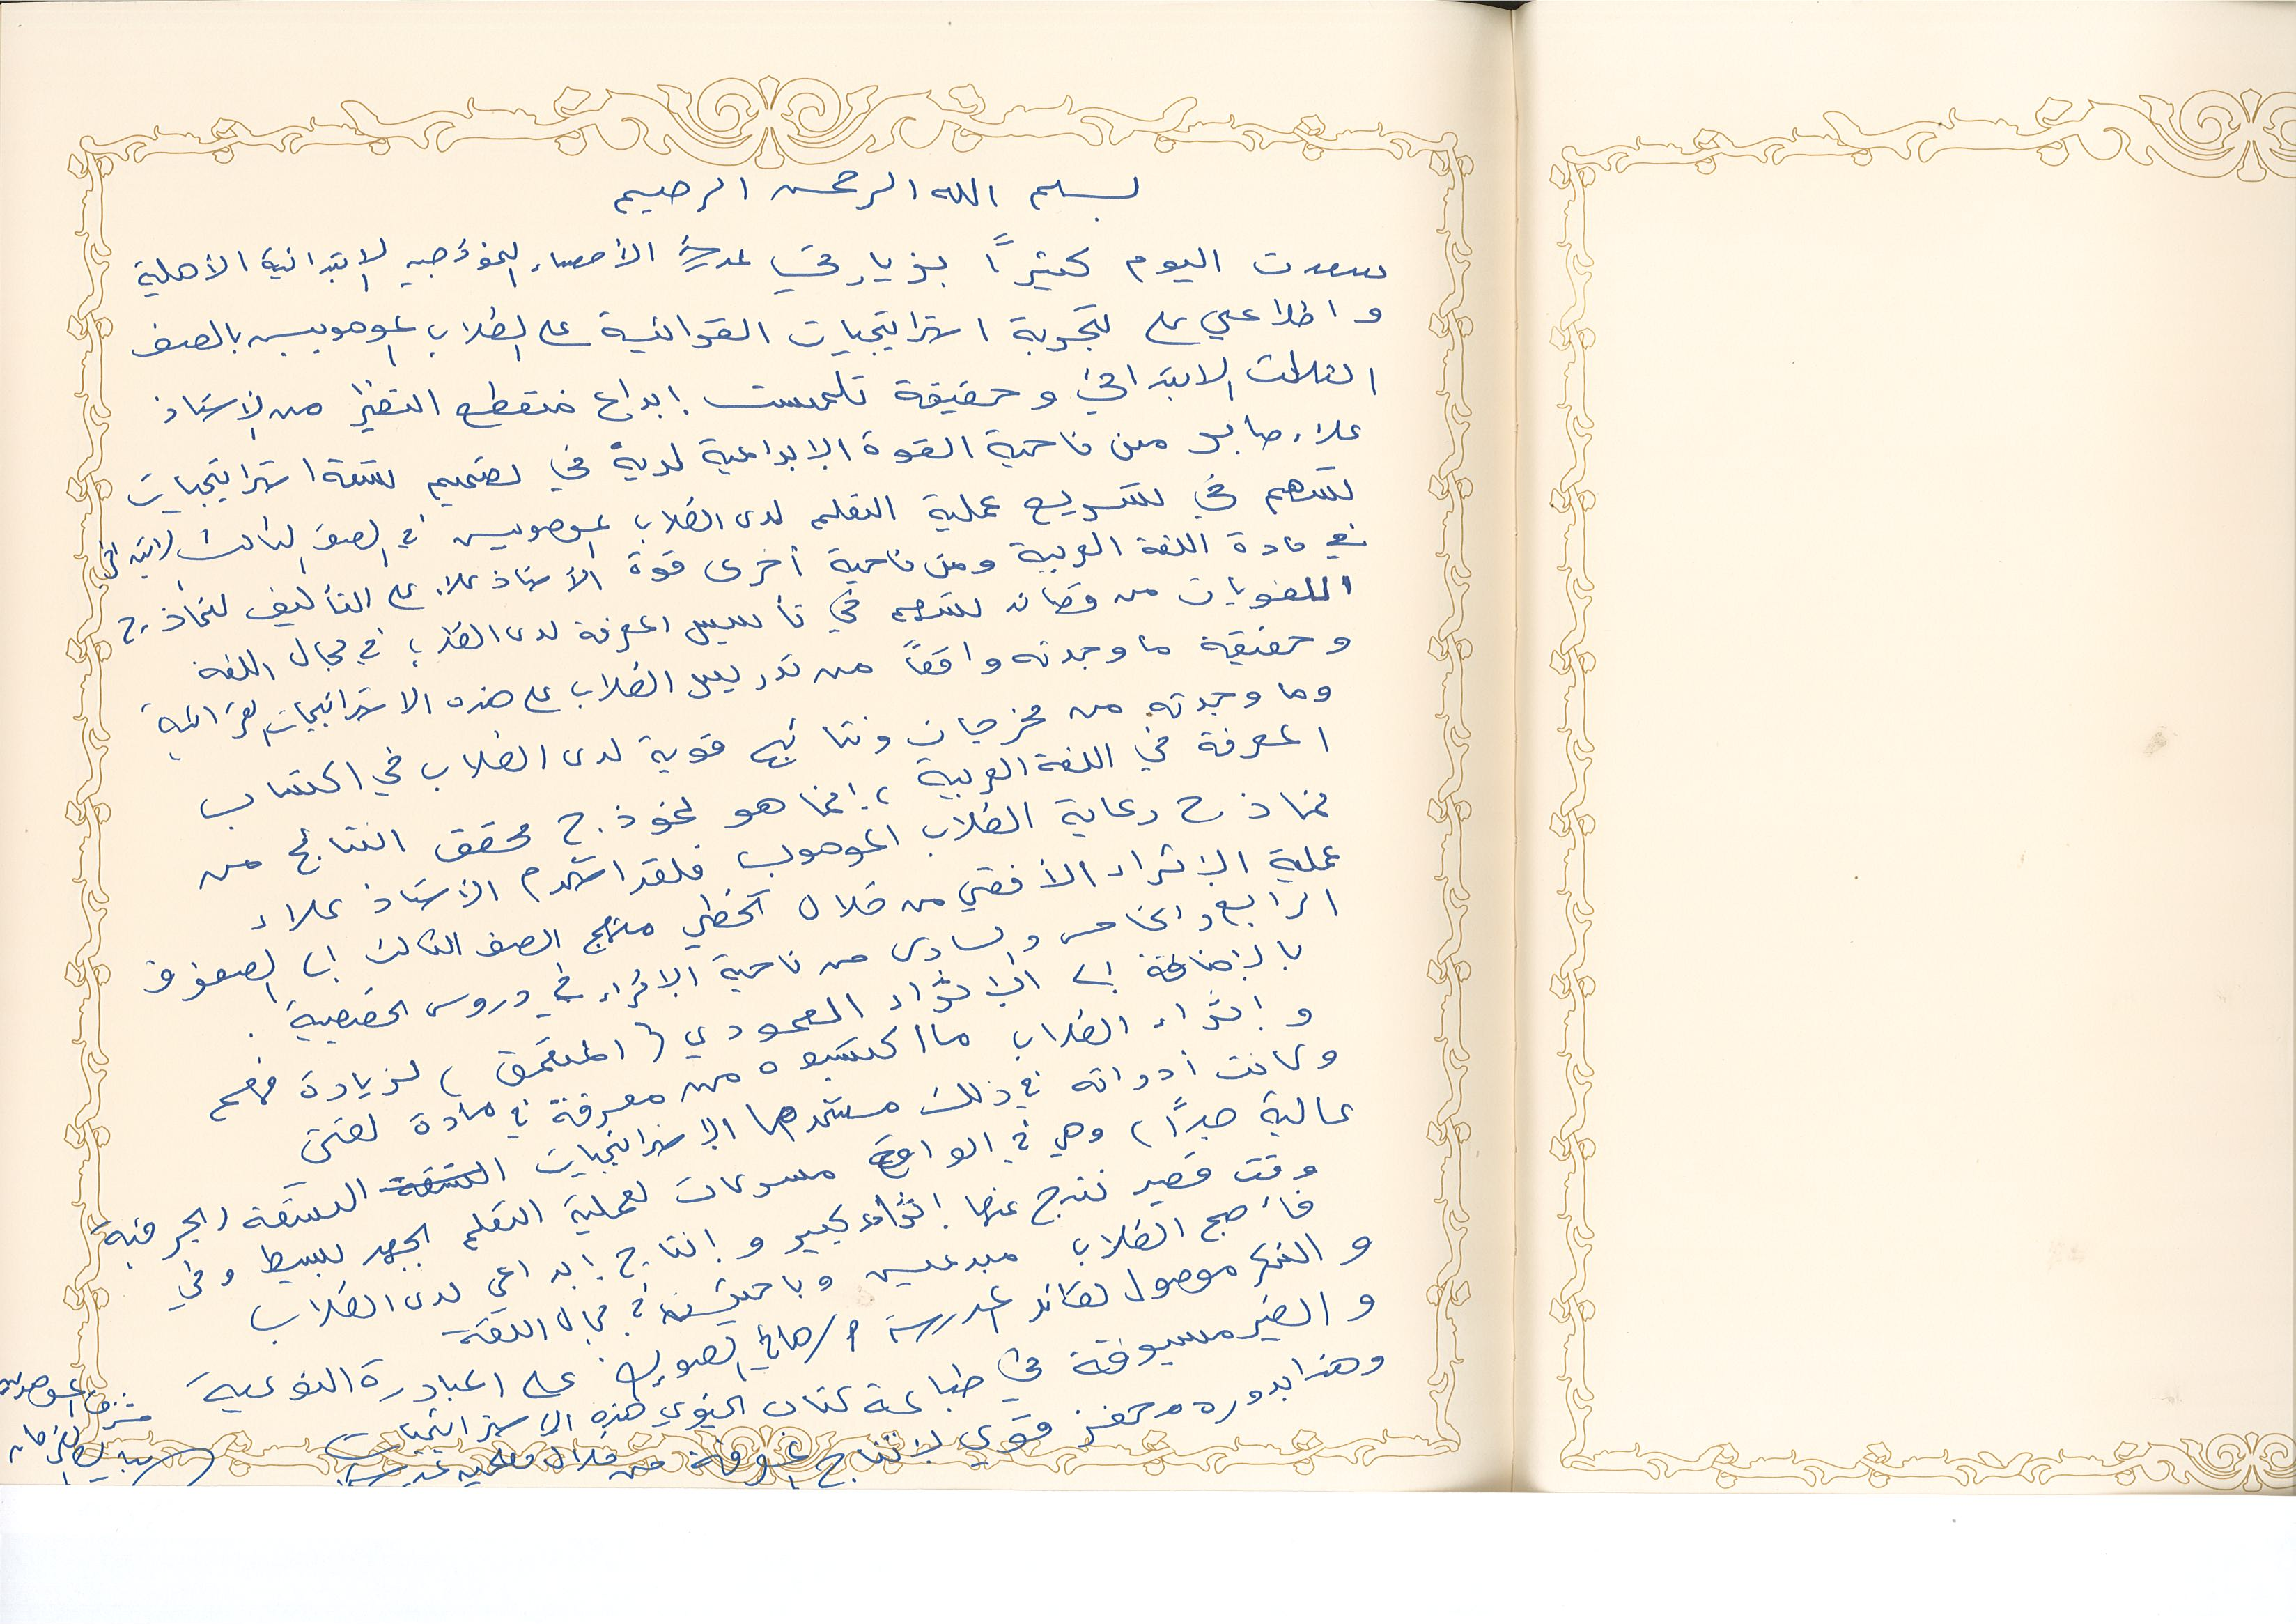 بسم الله الرحمن الرحيم
سعدت اليوم كثيرًا بزيارتي مدرسة الأحساء النموذجية الابتدائية الأهلية
واطلاعي على تجربة استراتيجيات القرائية على الطلاب الموهوبين بالصف
الثالث الابتدائي وحقيقة تلمست إبداع منقطع النظير من الأستاذ
علاء صابر من ناحية القوة الإبداعية لدية في تصميم ستة استراتيجيات
تسهم في تسريع عملية التعلم لدى الطلاب الموهوبين في الصف الثالث الابتدائي
في مادة اللغة العربية ومن ناحية أخرى قوة الأستاذ علاء على التأليف لنماذج
اللغويات من قصائد تسهم في تأسيس المعرفة لدى الطلاب في مجال اللغة
وحقيقة ما وجدته واقعاً من تدريس الطلاب على هذه الاستراتيجيات القرائية
وما وجدته من مخرجات ونتائج قوية لدى الطلاب في اكتساب
المعرفة في اللغة العربية، إنما هو نموذج محقق النتائج من
نماذج رعاية الطلاب الموهوب فلقد استخدم الأستاذ علاء
عملية الإثراء الأفقي من خلال تخطي منهج الصف الثالث إلى الصفوف
الرابع والخامس والسادس من ناحية الإثراء في دروس
بالإضافة إلى الإثراء العمودي (المتعمق) لزيادة فهم
وإثراء الطلاب ما اكتسبوه من معرفة في مادة لغتي
وكانت أدواته في ذلك مستخدما الاستراتيجيات الستة (
عالية جدًا) وهي في الواقع مسرعات لعملية التعلم الجهد بسيط وفي
وقت قصير نتج عنها إثراء كبير وإنتاج إبداعي لدى الطلاب
فأصبح الطلاب مبدعين وباحثين في مجال اللغة
والشكر موصول لقائد المدرسة أ/ هاني على المبادرة النوعية
والغير مسبوقة في طباعة كتاب هذه الاستراتيجيات
وهذا بدوره محفز قوي لإنتاج المعرفة من خلال معلمين مدرسة
مشرف الموهوبين